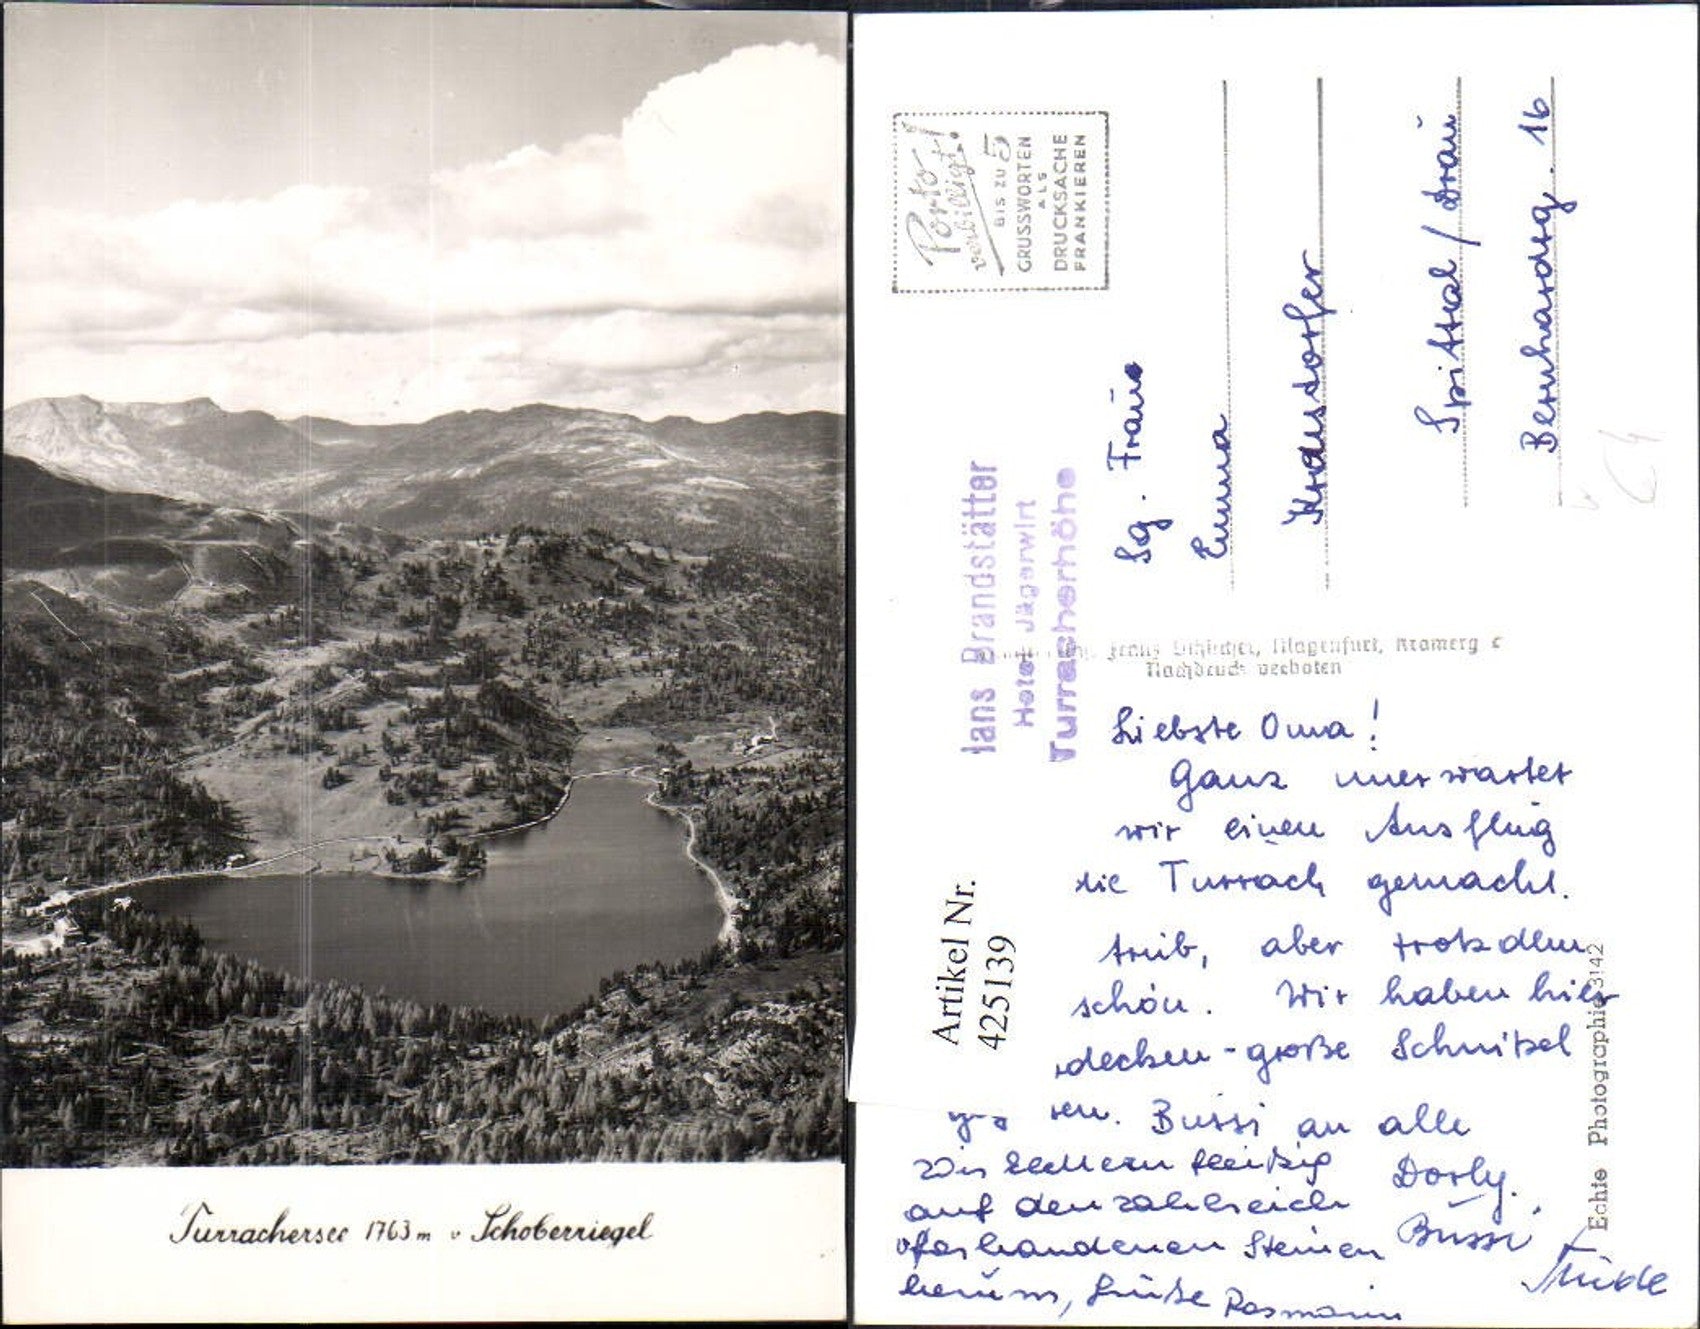 Turrachersee 1763 m v Schoberriegel
Porto
verbilligt!
BIS ZU 5
GRUSSWORTEN
ALS
DRUCKSACHE
FRANKIEREN
Sg. Frau
Emma
Krausdorfer
Spittal / Drau
Bernhardsg. 16
Hans Brandstätter
Hotel Jägerwirt
Turracherhöhe
Franz Schilcher, Klagenfurt, Kramerg
Nachdruck verboten
Artikel Nr.
425139
Liebste Oma!
Ganz unerwartet
wir einen Ausflug
die Turrach gemacht.
trüb, aber trotzdem
schön. Wir haben hier
decken-große Schnitzel
sen. Bussi an alle
Dorly.
Wir klettern fleißig
auf den zahlreich
vorhandenen Steinen
herum, Grüße
Bussi
Echte Photographie 3142